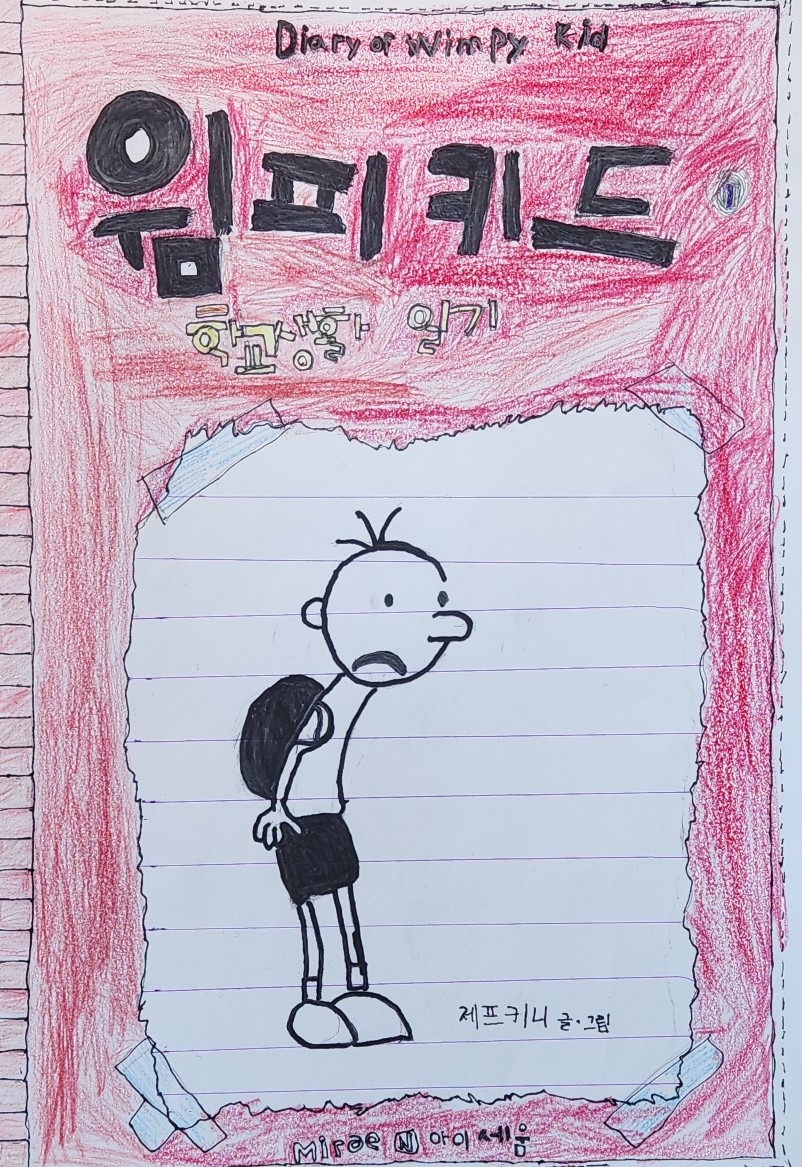 Diary of Wimpy Kid
윔피키드 1
학교생활 일기
제프키니 글·그림
Mirae N 아이세움